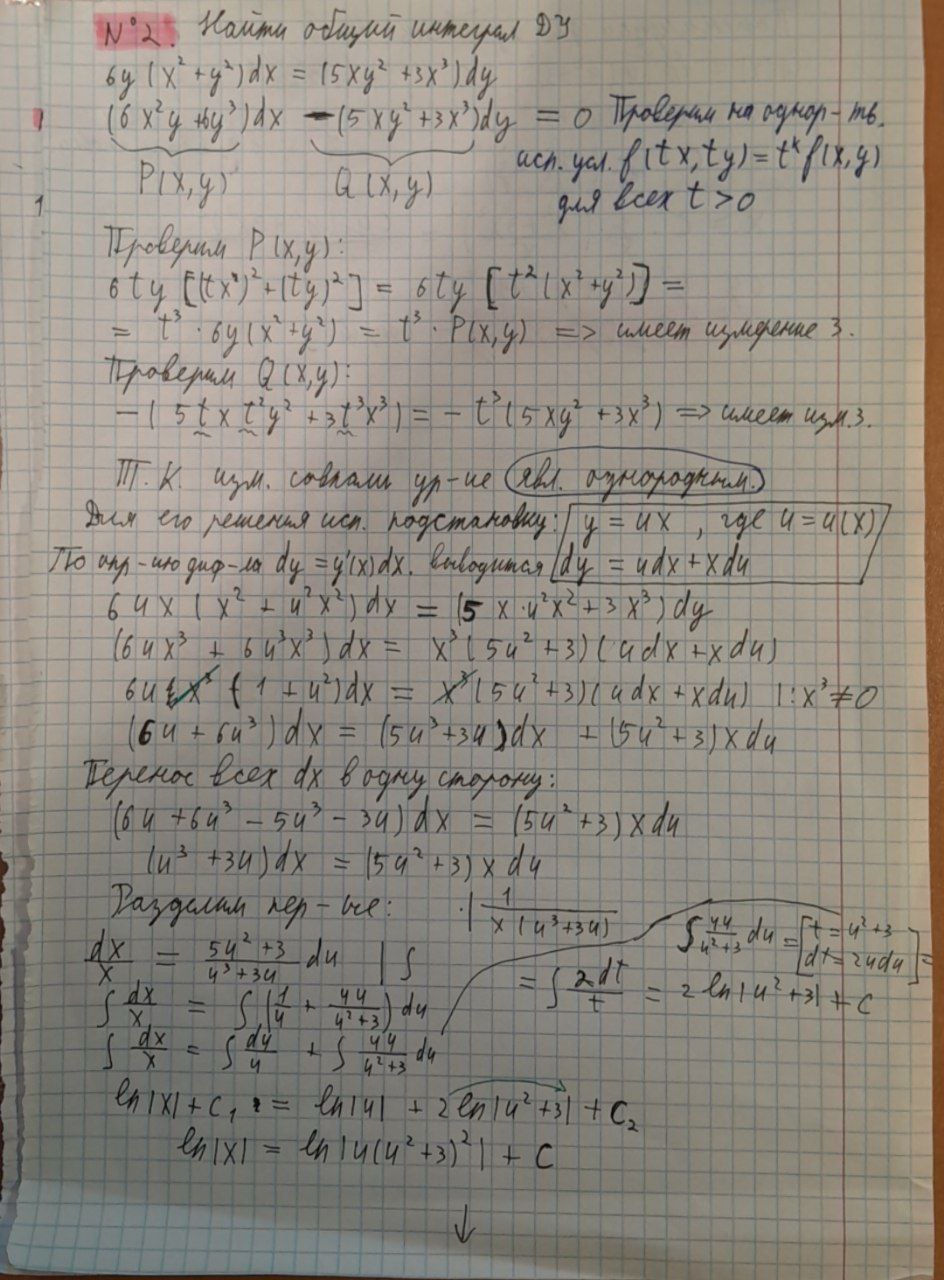 №2. Найти общий интеграл ДУ
6y(x²+y²)dx = (5xy²+3x³)dy
(6x²y+6y³)dx - (5xy²+3x³)dy = 0 Проверим на однор-ть.
P(x,y) Q(x,y) исп. усл. f(tx,ty)=tᵏf(x,y)
для всех t>0
Проверим P(x,y):
6ty[(tx)²+(ty)²] = 6ty[t²(x²+y²)] =
= t³·6y(x²+y²) = t³·P(x,y) => имеет измерение 3.
Проверим Q(x,y):
-(5txt²y²+3t³x³) = -t³(5xy²+3x³) => имеет изм.3.
Т.К. изм. совпали ур-ие явл. однородным.
Для его решения исп. подстановку: y = ux, где u=u(x)
По опр-ию диф-ла dy=y'(x)dx. выводится dy = udx+xdu
6ux(x²+u²x²)dx = (5x·u²x²+3x³)dy
(6ux³+6u³x³)dx = x³(5u²+3)(udx+xdu)
6ux³(1+u²)dx = x³(5u²+3)(udx+xdu) |:x³≠0
(6u+6u³)dx = (5u³+3u)dx + (5u²+3)xdu
Перенос всех dx в одну сторону:
(6u+6u³-5u³-3u)dx = (5u²+3)xdu
(u³+3u)dx = (5u²+3)xdu
Разделим пер-ые: ·| 1/(x(u³+3u))
dx/x = (5u²+3)/(u³+3u) du | ∫
∫ 4u/(u²+3) du = [t=u²+3 dt=2udu] =
= ∫ 2dt/t = 2ln|u²+3| + C
∫ dx/x = ∫ (1/u + 4u/(u²+3)) du
∫ dx/x = ∫ du/u + ∫ 4u/(u²+3) du
ln|x|+C₁ = ln|u| + 2ln|u²+3| + C₂
ln|x| = ln|u(u²+3)²| + C
↓